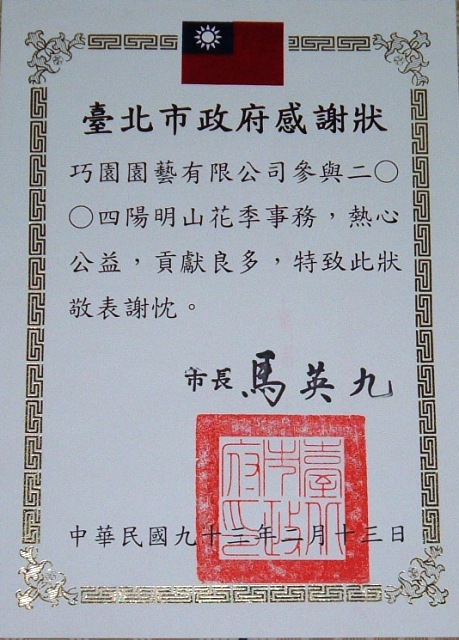 臺北市政府感謝狀
巧園園藝有限公司參與二〇
〇四陽明山花季事務，熱心
公益，貢獻良多，特致此狀
敬表謝忱。
市長 馬英九
臺北市政府印
中華民國九十三年二月十三日